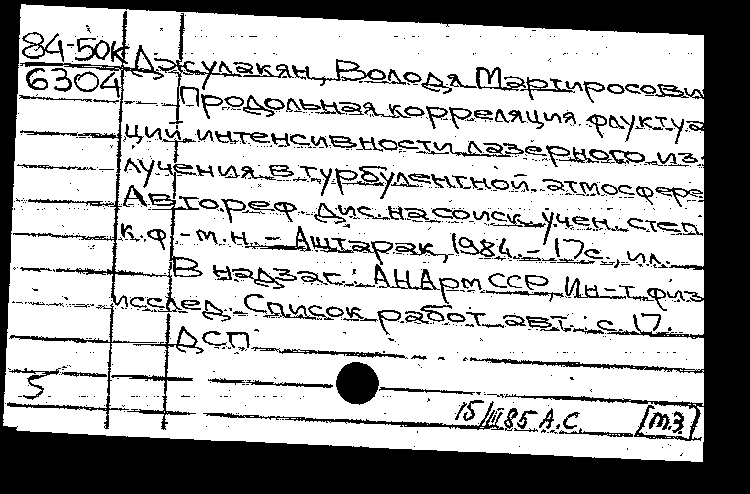 84-50к Джулакян, Володя Мартиросови
6304 Продольная корреляция флуктуа-
ций интенсивности лазерного из-
лучения в турбулентной атмосфере
Автореф. дис. на соиск. учен. степ.
к. ф.-м. н. - Аштарак, 1984. - 17 с., ил.
В надзаг.: АН АрмССР, Ин-т физ.
исслед. - Список работ авт.: с. 17.
ДСП
5
15/III 85 А.С. [м.з.]